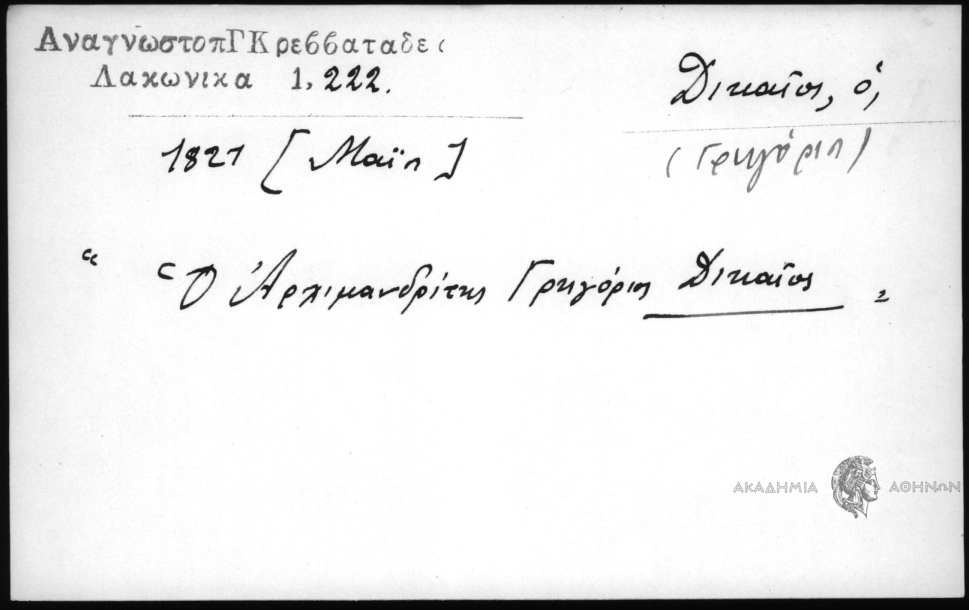 ΑναγνωστοπΓΚρεββαταδες
Λακωνικα 1, 222.
Δικαῖος, ὁ,
(Γρηγόριος)
1821 [Μαΐου]
“ Ὁ Ἀρχιμανδρίτης Γρηγόριος Δικαῖος „
ΑΚΑΔΗΜΙΑ ΑΘΗΝΩΝ